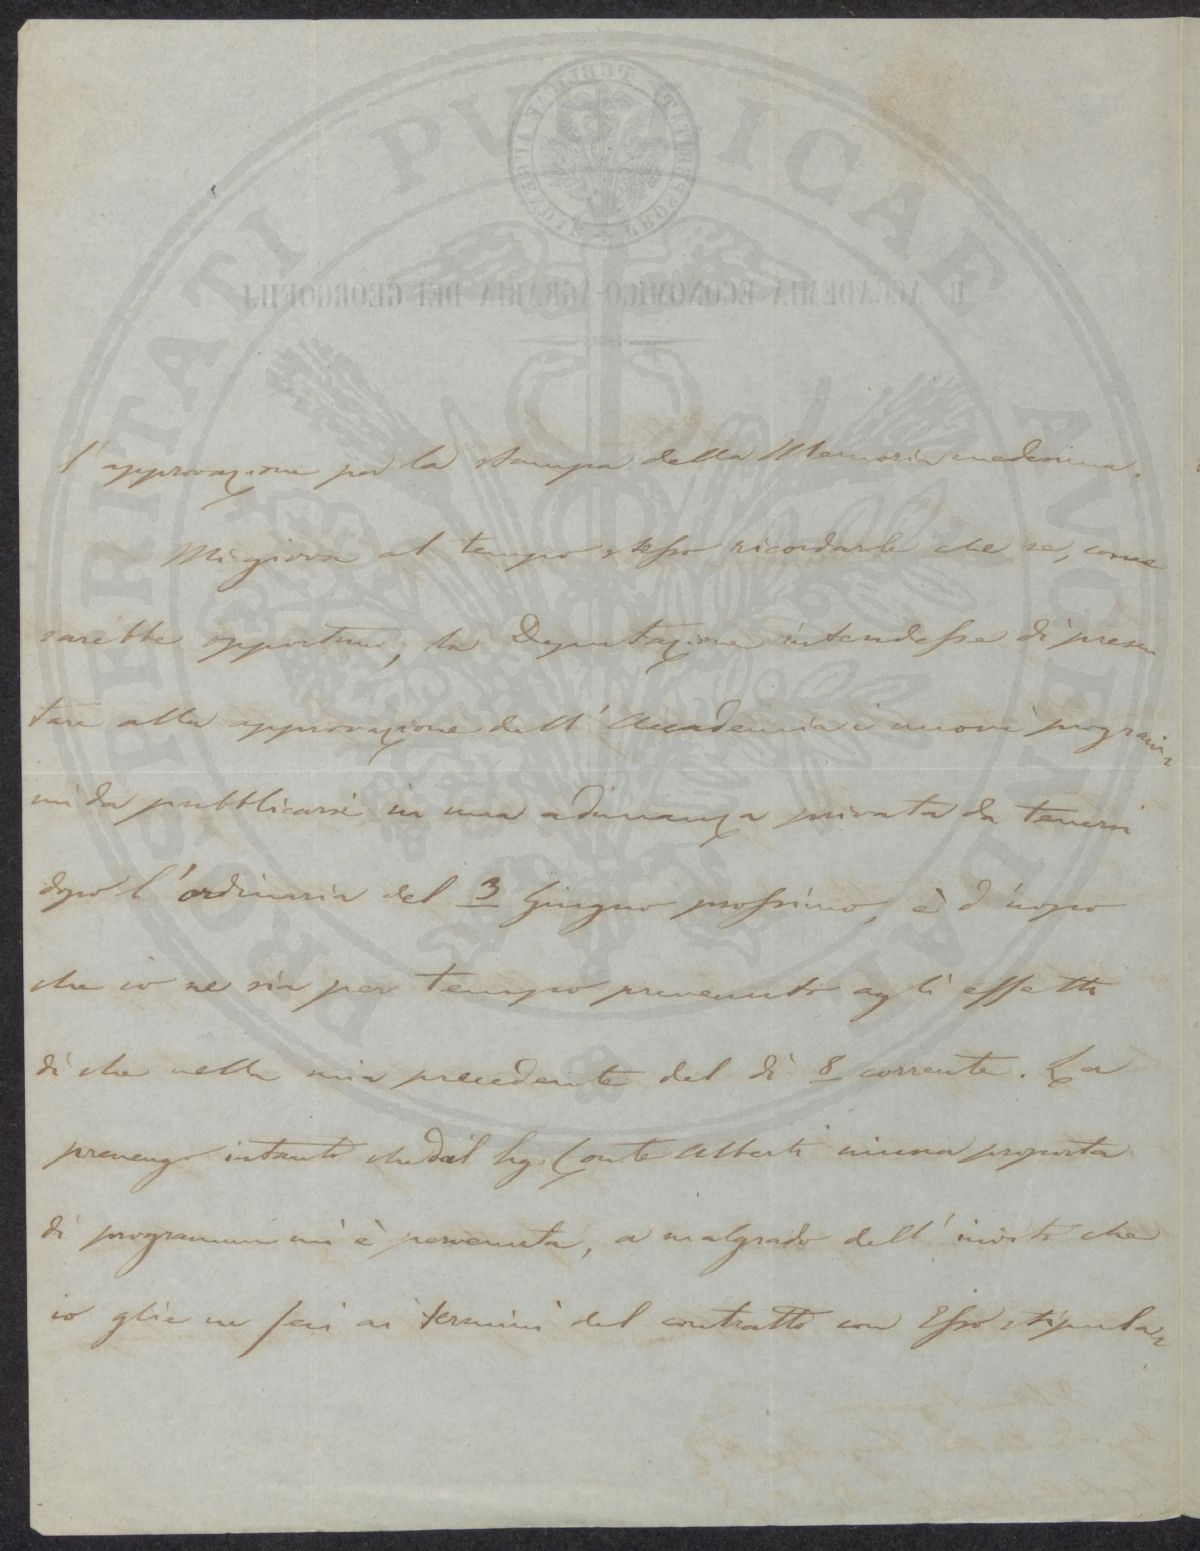 l'approvazione per la stampa della Memoria medesima.
Mi giova al tempo stesso ricordarle che se, come
sarebbe opportuno, la Deputazione intendesse di presen
tare alla approvazione dell'Accademia i nuovi program=
mi da pubblicarsi in una adunanza privata da tenersi
dopo l'ordinaria del 3 Giugno prossimo, è d'uopo
che io ne sia per tempo prevenuto agli effetti
di che nella mia precedente del dì 8 corrente. La
prevengo intanto che dal Sig. Conte Alberti niuna proposta
di programmi mi è pervenuta, a malgrado dell'invito che
io glie ne feci ai termini del contratto con Esso stipula=
PROSPERITATI PUBLICAE AUGENDAE
R. ACCADEMIA ECONOMICO-AGRARIA DEI GEORGOFILI